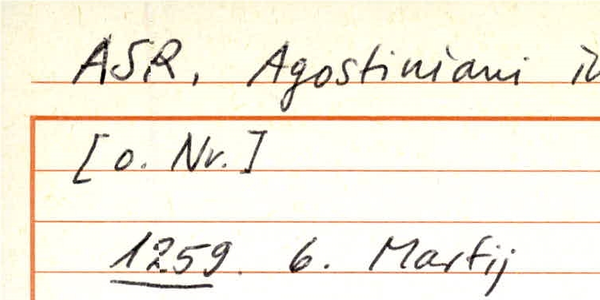 ASR, Agostiniani in
[o. Nr.]
1259. 6. Martij